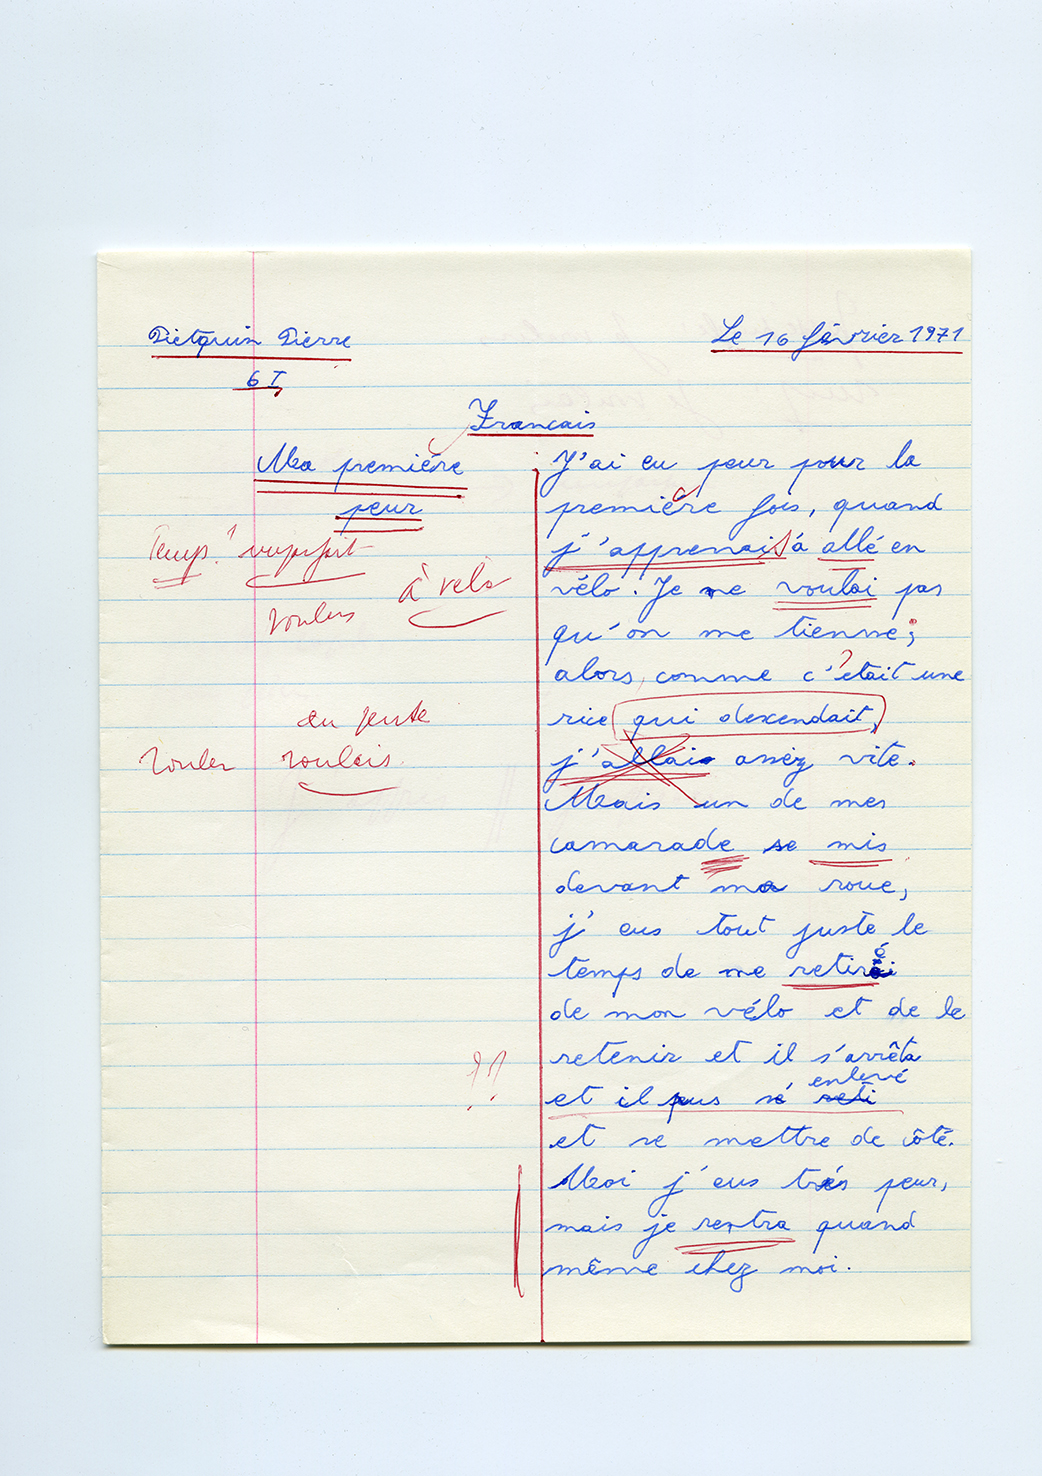 Pietquin Pierre
Le 16 février 1971
6 I
Francais
Ma première
peur
Temps? imparfait
à vélo
voulus
en pente
rouler roulais.
??
J'ai eu peur pour la
première fois, quand
j'apprenais à allé en
vélo. Je ne voulai pas
qu'on me tienne;
alors, comme c'était une
rue qui descendait,
j'allais assez vite.
Mais un de mes
camarade se mis
devant ma roue,
j'eus tout juste le
temps de me retiré
de mon vélo et de le
retenir et il s'arrêta
enlevé
et il pus s'é reti
et se mettre de côté.
Moi j'eus très peur,
mais je rentra quand
même chez moi.